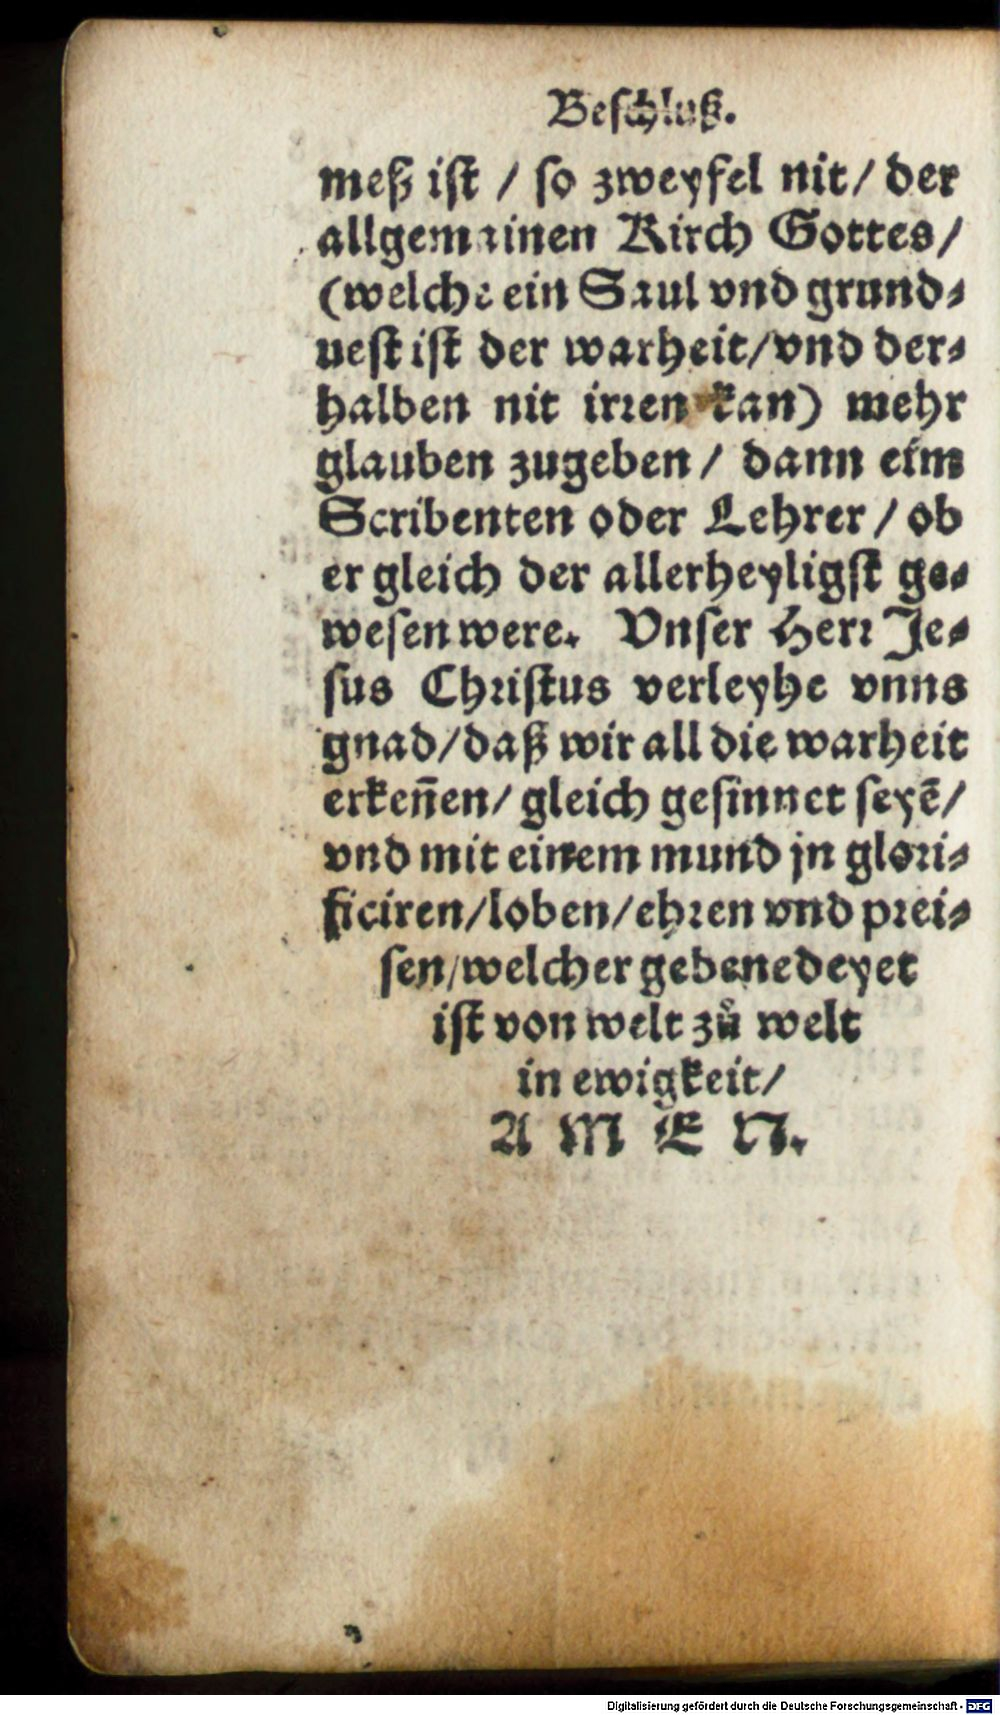 Beschluß.
meß ist / so zweyfel nit / der
allgemainen Kirch Gottes /
(welche ein Saul vnd grund-
uest ist der warheit / vnd der-
halben nit irren kan) mehr
glauben zugeben / dann eim
Scribenten oder Lehrer / ob
er gleich der allerheyligst ge-
wesen were. Vnser Herr Je-
sus Christus verleyhe vnns
gnad / daß wir all die warheit
erkeñen / gleich gesinnet seyẽ /
vnd mit einem mund jn glori-
ficiren / loben / ehren vnd prei-
sen / welcher gebenedeyet
ist von welt zů welt
in ewigkeit /
A M E N.
Digitalisierung gefördert durch die Deutsche Forschungsgemeinschaft - DFG